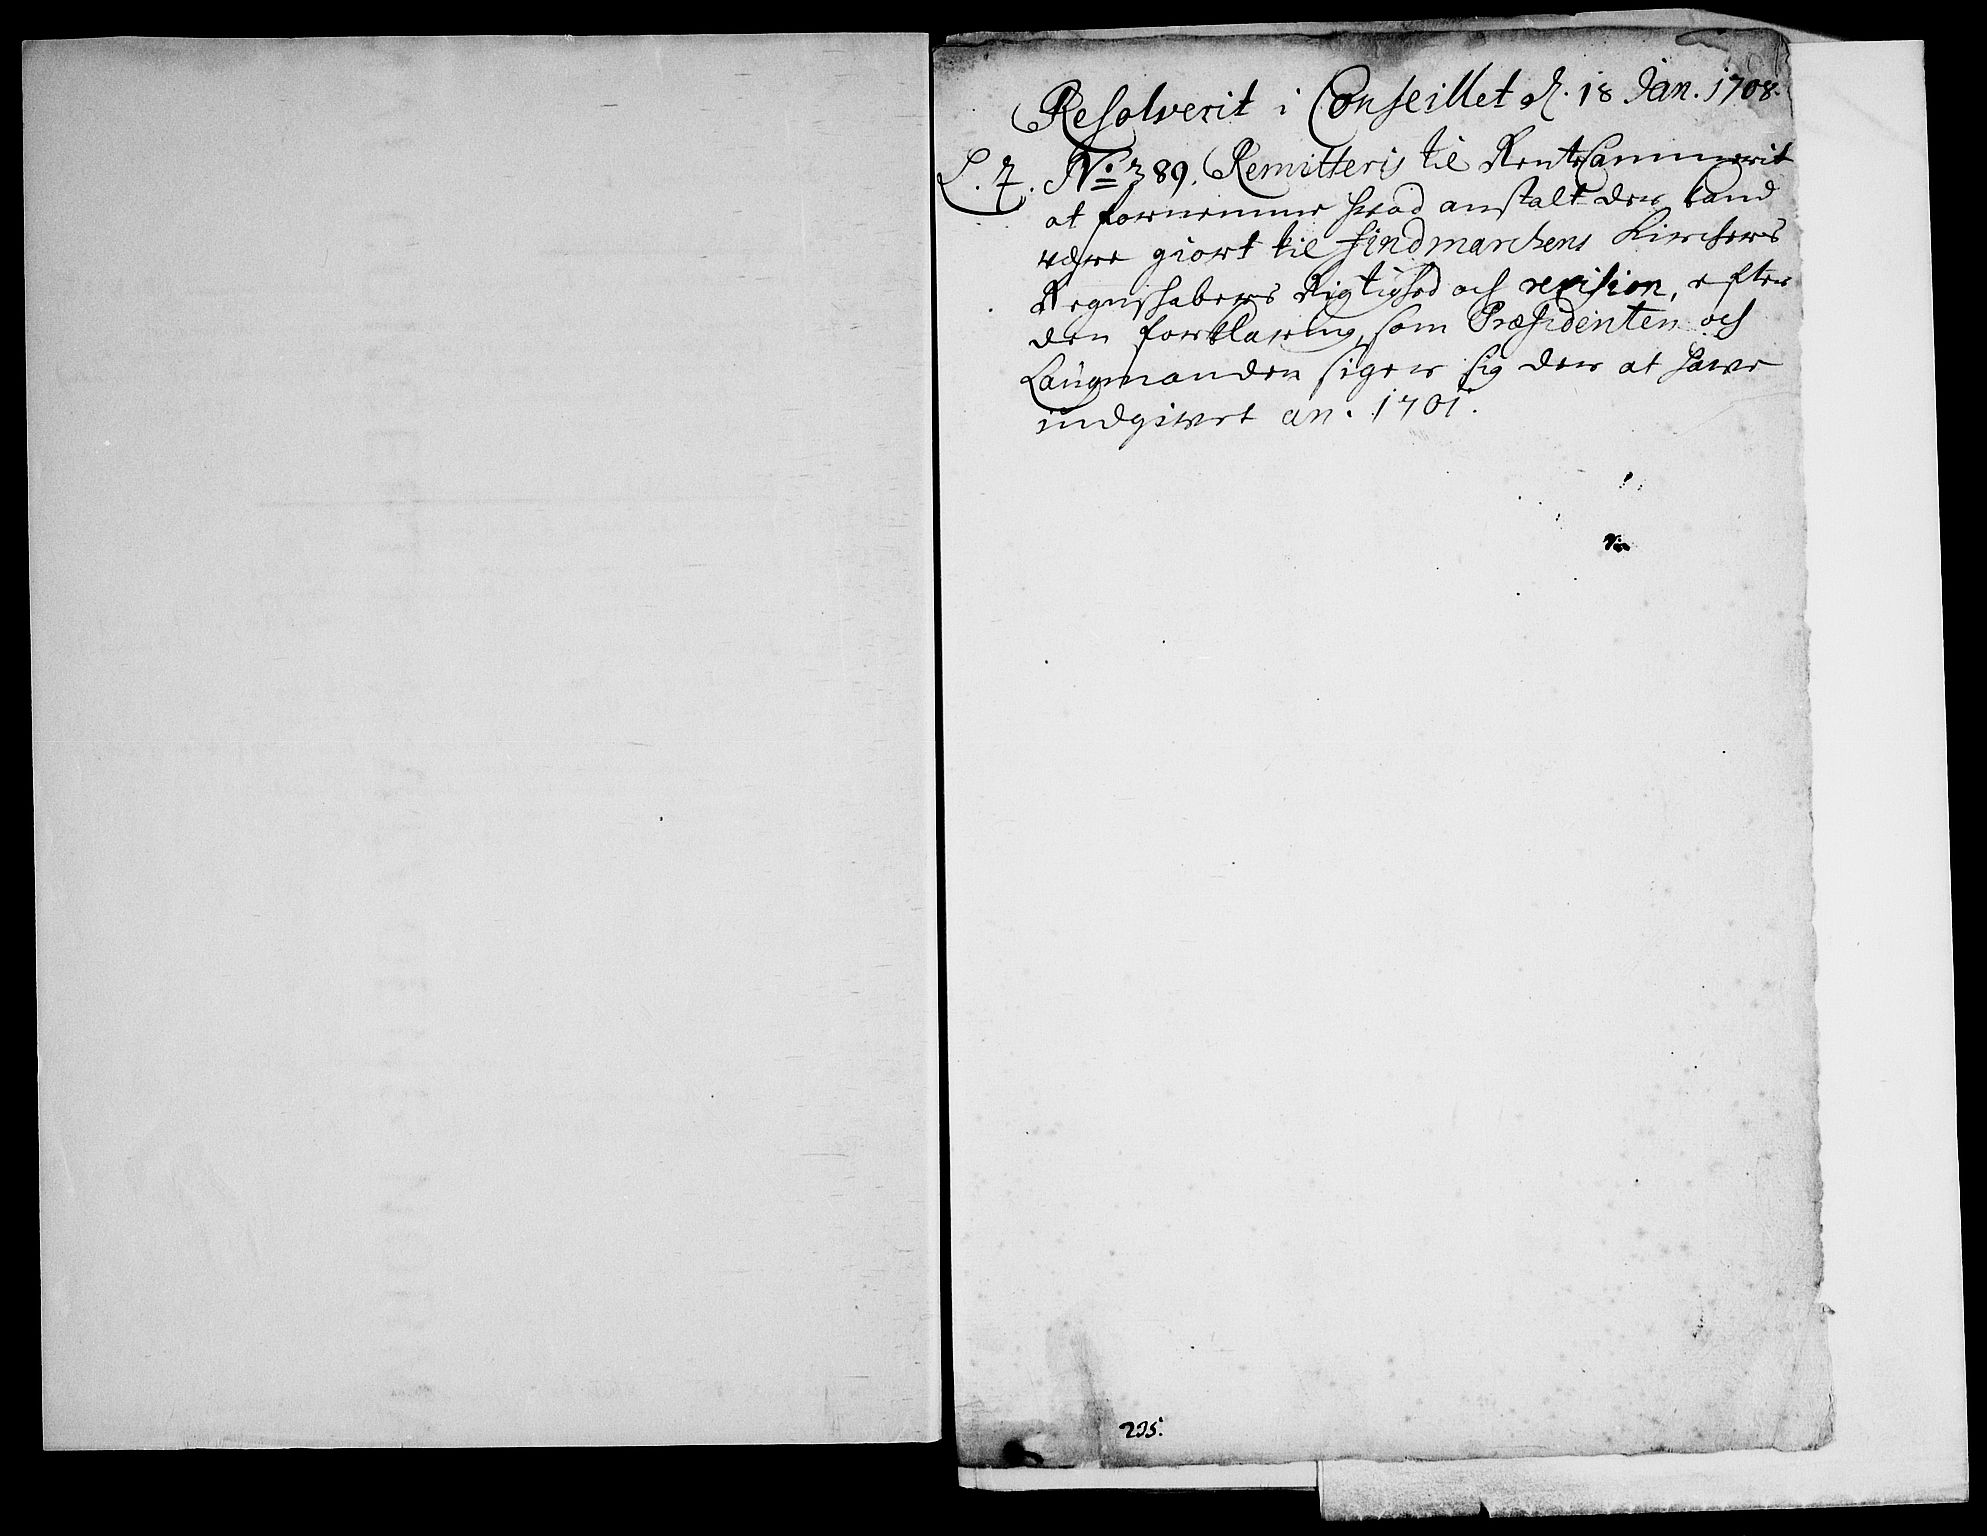 Resolverit i Conseillet d. 18 Jan. 1708.
L. Z. No. 389. Remitteris til RenteCammerit
at fornemme hvad anstalt der kand
være giort til Findmarchens Kirchers
Regnschabers Rigtighed och revision, efter
den forklaring, som Præsidenten och
Laugmanden siger sig der at hawe
indgivet an. 1701.
295.